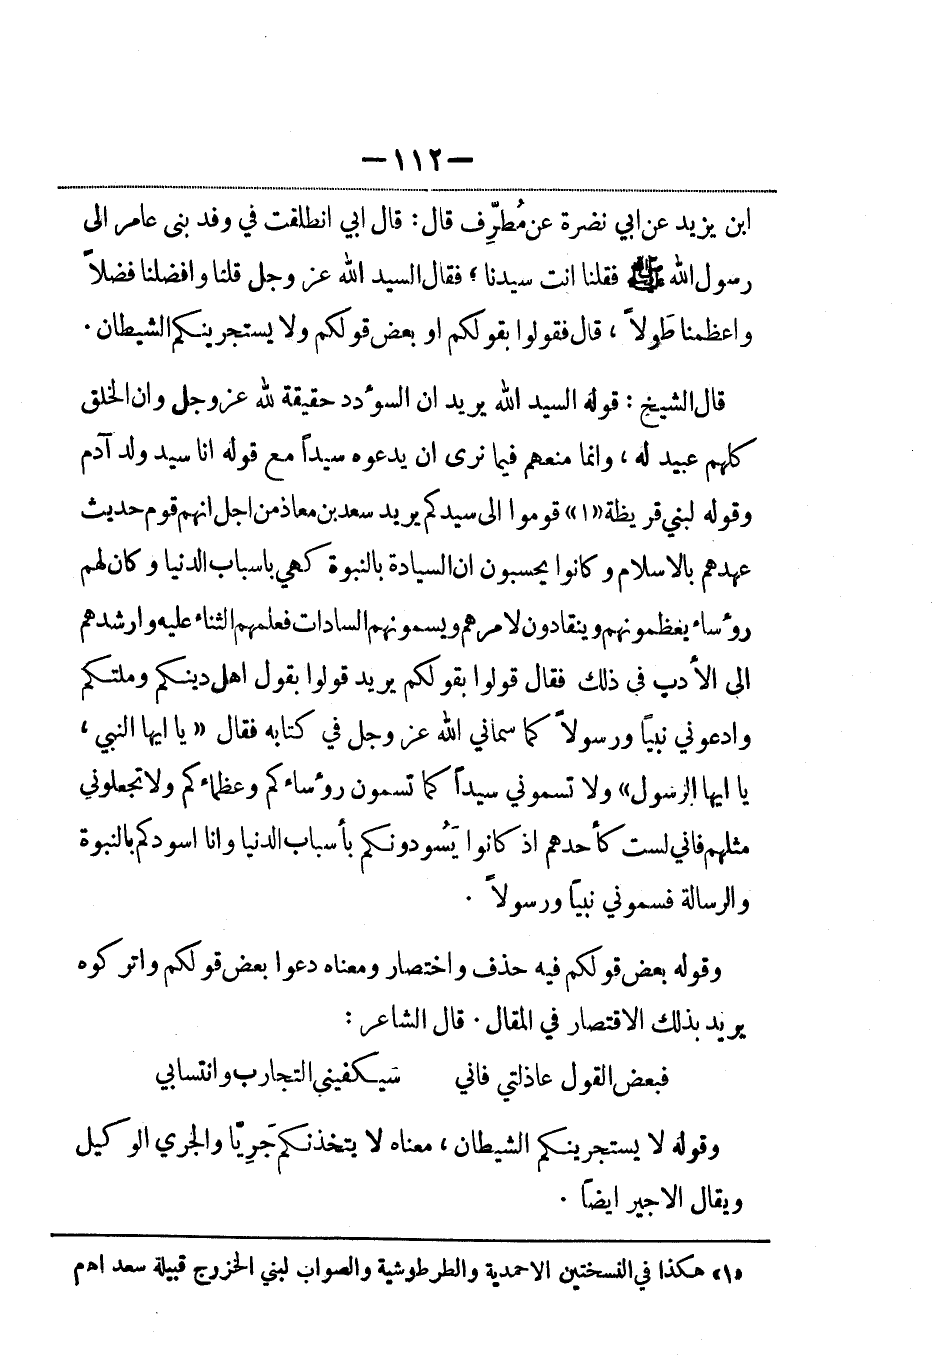 — ١١٢ —
ابن يزيد عن ابي نضرة عن مُطرِّف قال : قال ابي انطلقت في وفد بنى عامر الى
رسول الله ﷺ فقلنا انت سيدنا ؛ فقال السيد الله عز وجل قلنا وافضلنا فضلاً
واعظمنا طَولاً ، قال فقولوا بقولكم او بعض قولكم ولا يستجرينكم الشيطان .
قال الشيخ : قوله السيد الله يريد ان السوٴدد حقيقة لله عز وجل وان الخلق
كلهم عبيد له ، وانما منعهم فيما نرى ان يدعوه سيداً مع قوله انا سيد ولد آدم
وقوله لبني قريظة «١» قوموا الى سيدكم يريد سعد بن معاذ من اجل انهم قوم حديث
عهدهم بالاسلام وكانوا يحسبون ان السيادة بالنبوة كهي باسباب الدنيا وكان لهم
روٴساء يعظمونهم وينقادون لامرهم ويسمونهم السادات فعلمهم الثناء عليه وارشدهم
الى الأدب فى ذلك فقال قولوا بقولكم يريد قولوا بقول اهل دينكم وملتكم
وادعوني نبيًا ورسولاً كما سماني الله عز وجل في كتابه فقال « يا ايها النبي ،
يا ايها الرسول» ولا تسموني سيداً كما تسمون روٴساءكم وعظماءكم ولا تجعلوني
مثلهم فاني لست كأحدهم اذ كانوا يَسُودونكم بأسباب الدنيا وانا اسودكم بالنبوة
والرسالة فسموني نبيًا ورسولاً .
وقوله بعض قولكم فيه حذف واختصار ومعناه دعوا بعض قولكم واتركوه
يريد بذلك الاقتصار في المقال . قال الشاعر :
فبعض القول عاذلتي فاني سَيكفيني التجارب وانتسابي
وقوله لا يستجرينكم الشيطان ، معناه لا يتخذنكم جَرِيًّا والجري الوكيل
ويقال الاجير ايضاً .
«١» هكذا في النسختين الاحمدية والطرطوشية والصواب لبني الخزرج قبيلة سعد اهم